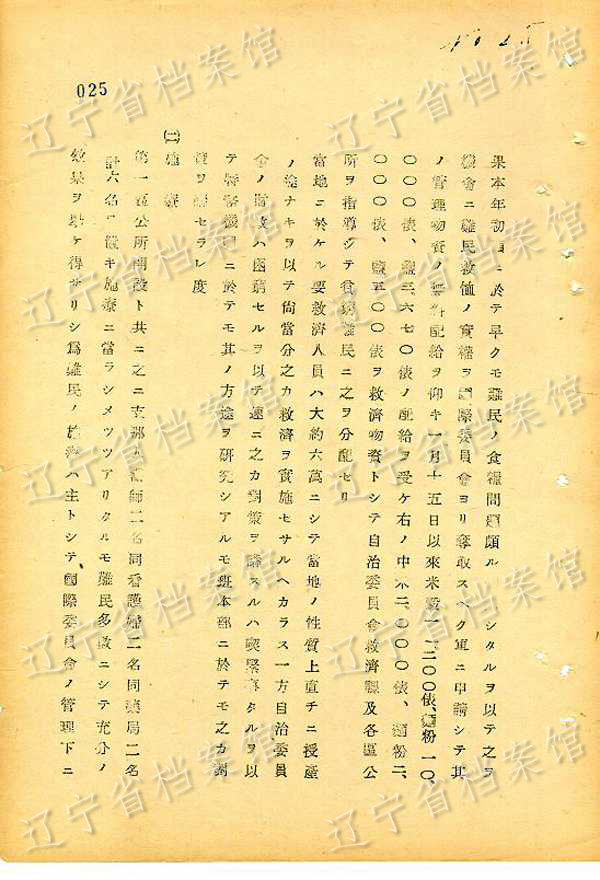 025
果本年初頭ニ於テ早クモ難民ノ食糧問題頗ル シタルヲ以テ之ヲ
機會ニ難民救恤ノ實權ヲ國際委員會ヨリ奪取スヘク軍ニ申請シテ其
ノ管理物資ノ 配給ヲ仰キ一月十五日以來米 一、二〇〇俵、麵粉一〇、
〇〇〇俵、鹽三、六七〇俵ノ配給ヲ受ケ右ノ中米二、〇〇〇俵、麵粉二、
〇〇〇俵、鹽五〇〇俵ヲ救濟物資トシテ自治委員會救濟課及各區公
所ヲ指導シテ貧窮難民ニ之ヲ分配セリ
當地ニ於ケル要救濟人員ハ大約六萬ニシテ當地ノ性質上直チニ授產
ノ途ナキヲ以テ尙當分之カ救濟ヲ實施セサルヘカラス一方自治委員
會ノ財政ハ困窮セルヲ以テ速ニ之カ對策ヲ講スルハ喫緊事タルヲ以
テ特務機關ニ於テモ其ノ方途ヲ硏究シアルモ班本部ニ於テモ之カ
ヲ セラレ度
(二)施療
第一區公所開設ト共ニ之ニ支那人醫師二名同看護婦二名同藥局二名
計六名ヲ置キ施療ニ當ラシメツツアリタルモ難民多數ニシテ充分ノ
效果ヲ擧ケ得サリシ爲難民ノ施療ハ主トシテ國際委員會ノ管理下ニ
辽宁省档案馆
辽宁省档案馆
辽宁省档案馆
辽宁省档案馆
辽宁省档案馆
辽宁省档案馆
辽宁省档案馆
辽宁省档案馆
辽宁省档案馆
辽宁省档案馆